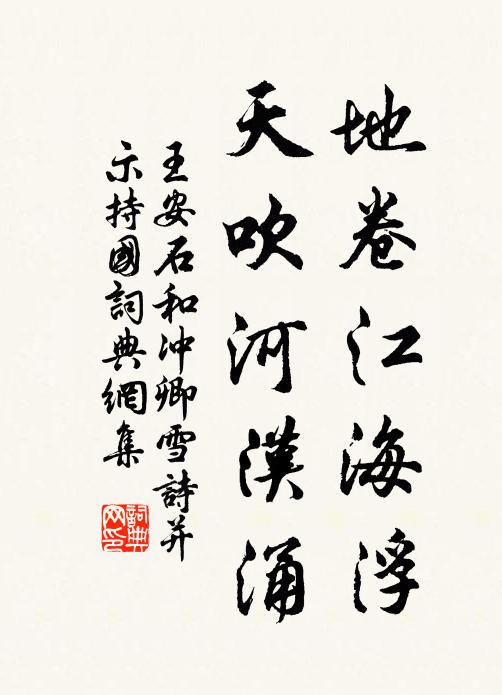 地卷江海浮
天吹河漢涌
王安石和冲卿雪詩并
示持國詞典網集
詞典网印